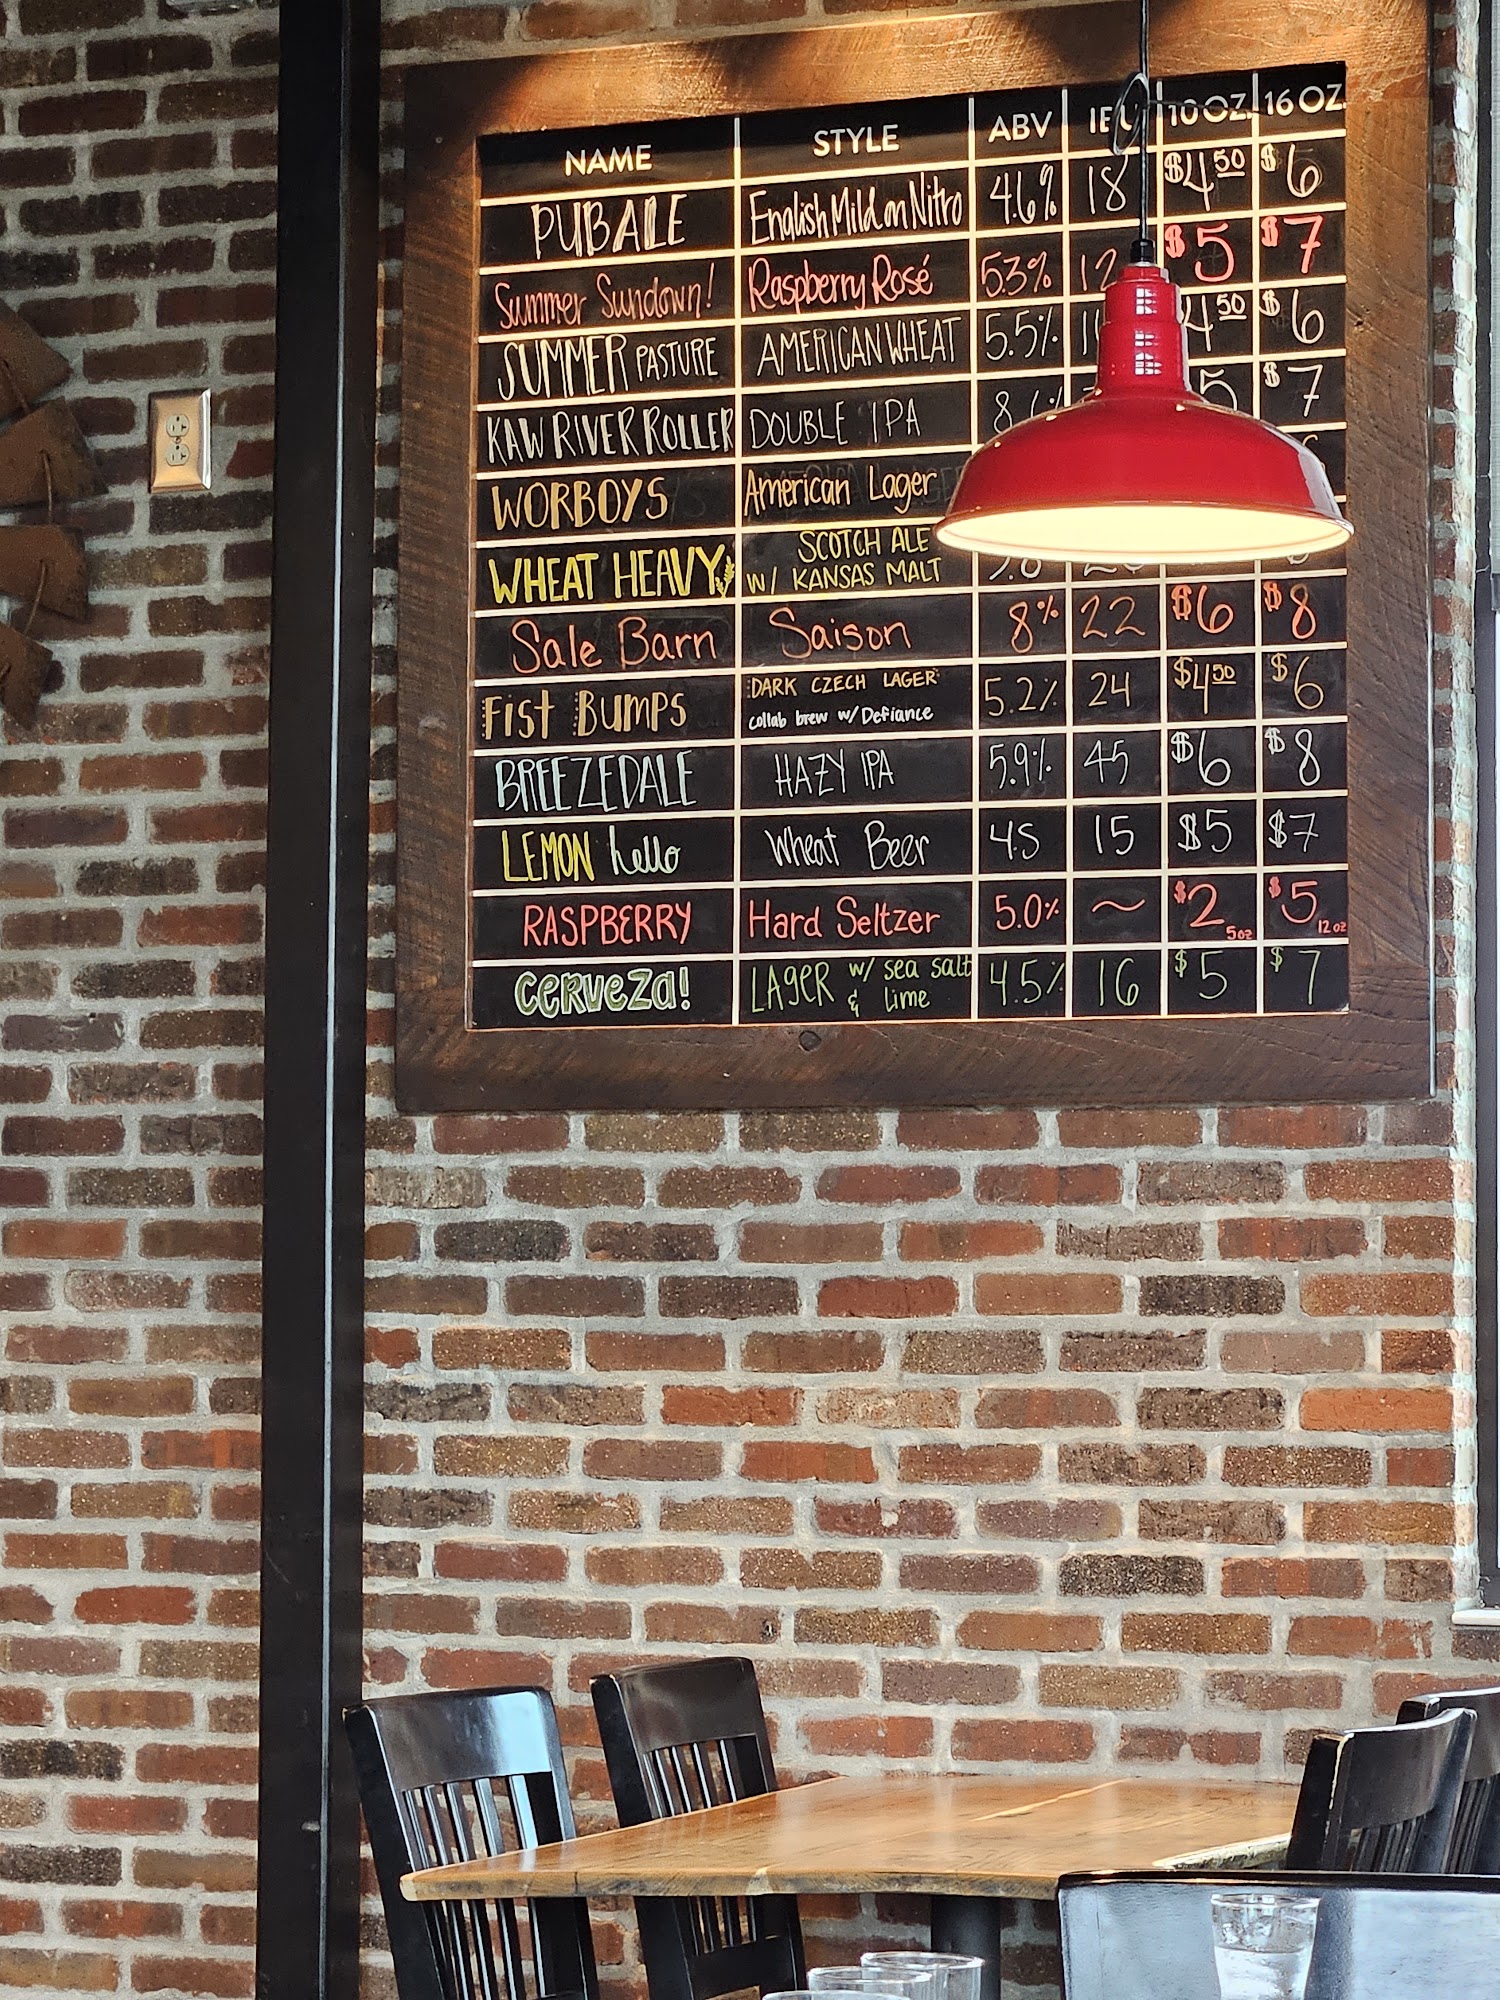 NAME STYLE ABV IBU 10 OZ. 16 OZ.
PUB ALE English Mild on Nitro 4.6% 18 $4.50 $6
Summer Sundown! Raspberry Rosé 5.3% 12 $5 $7
SUMMER PASTURE AMERICAN WHEAT 5.5% $6
KAW RIVER ROLLER DOUBLE IPA $7
WORBOYS American Lager
WHEAT HEAVY SCOTCH ALE
W/ KANSAS MALT
Sale Barn Saison 8% 22 $6 $8
Fist Bumps DARK CZECH LAGER 5.2% 24 $4.50 $6
collab brew w/ Defiance
BREEZEDALE HAZY IPA 5.9% 45 $6 $8
LEMON hello Wheat Beer 4.5 15 $5 $7
RASPBERRY Hard Seltzer 5.0% ~ $2 5oz $5 12oz
CERVEZA! LAGER w/ sea salt & lime 4.5% 16 $5 $7